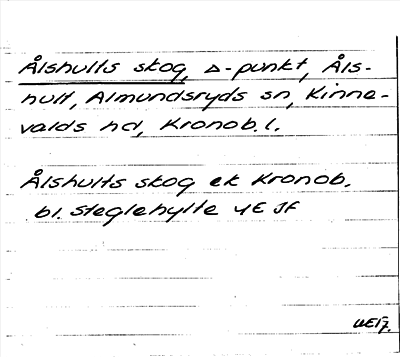 Ålshults skog, Δ-punkt, Åls-
hult, Almundsryds sn, Kinne-
valds hd, Kronob. l.
Ålshults skog ek Kronob.
bl. Steglehylte 4E JF